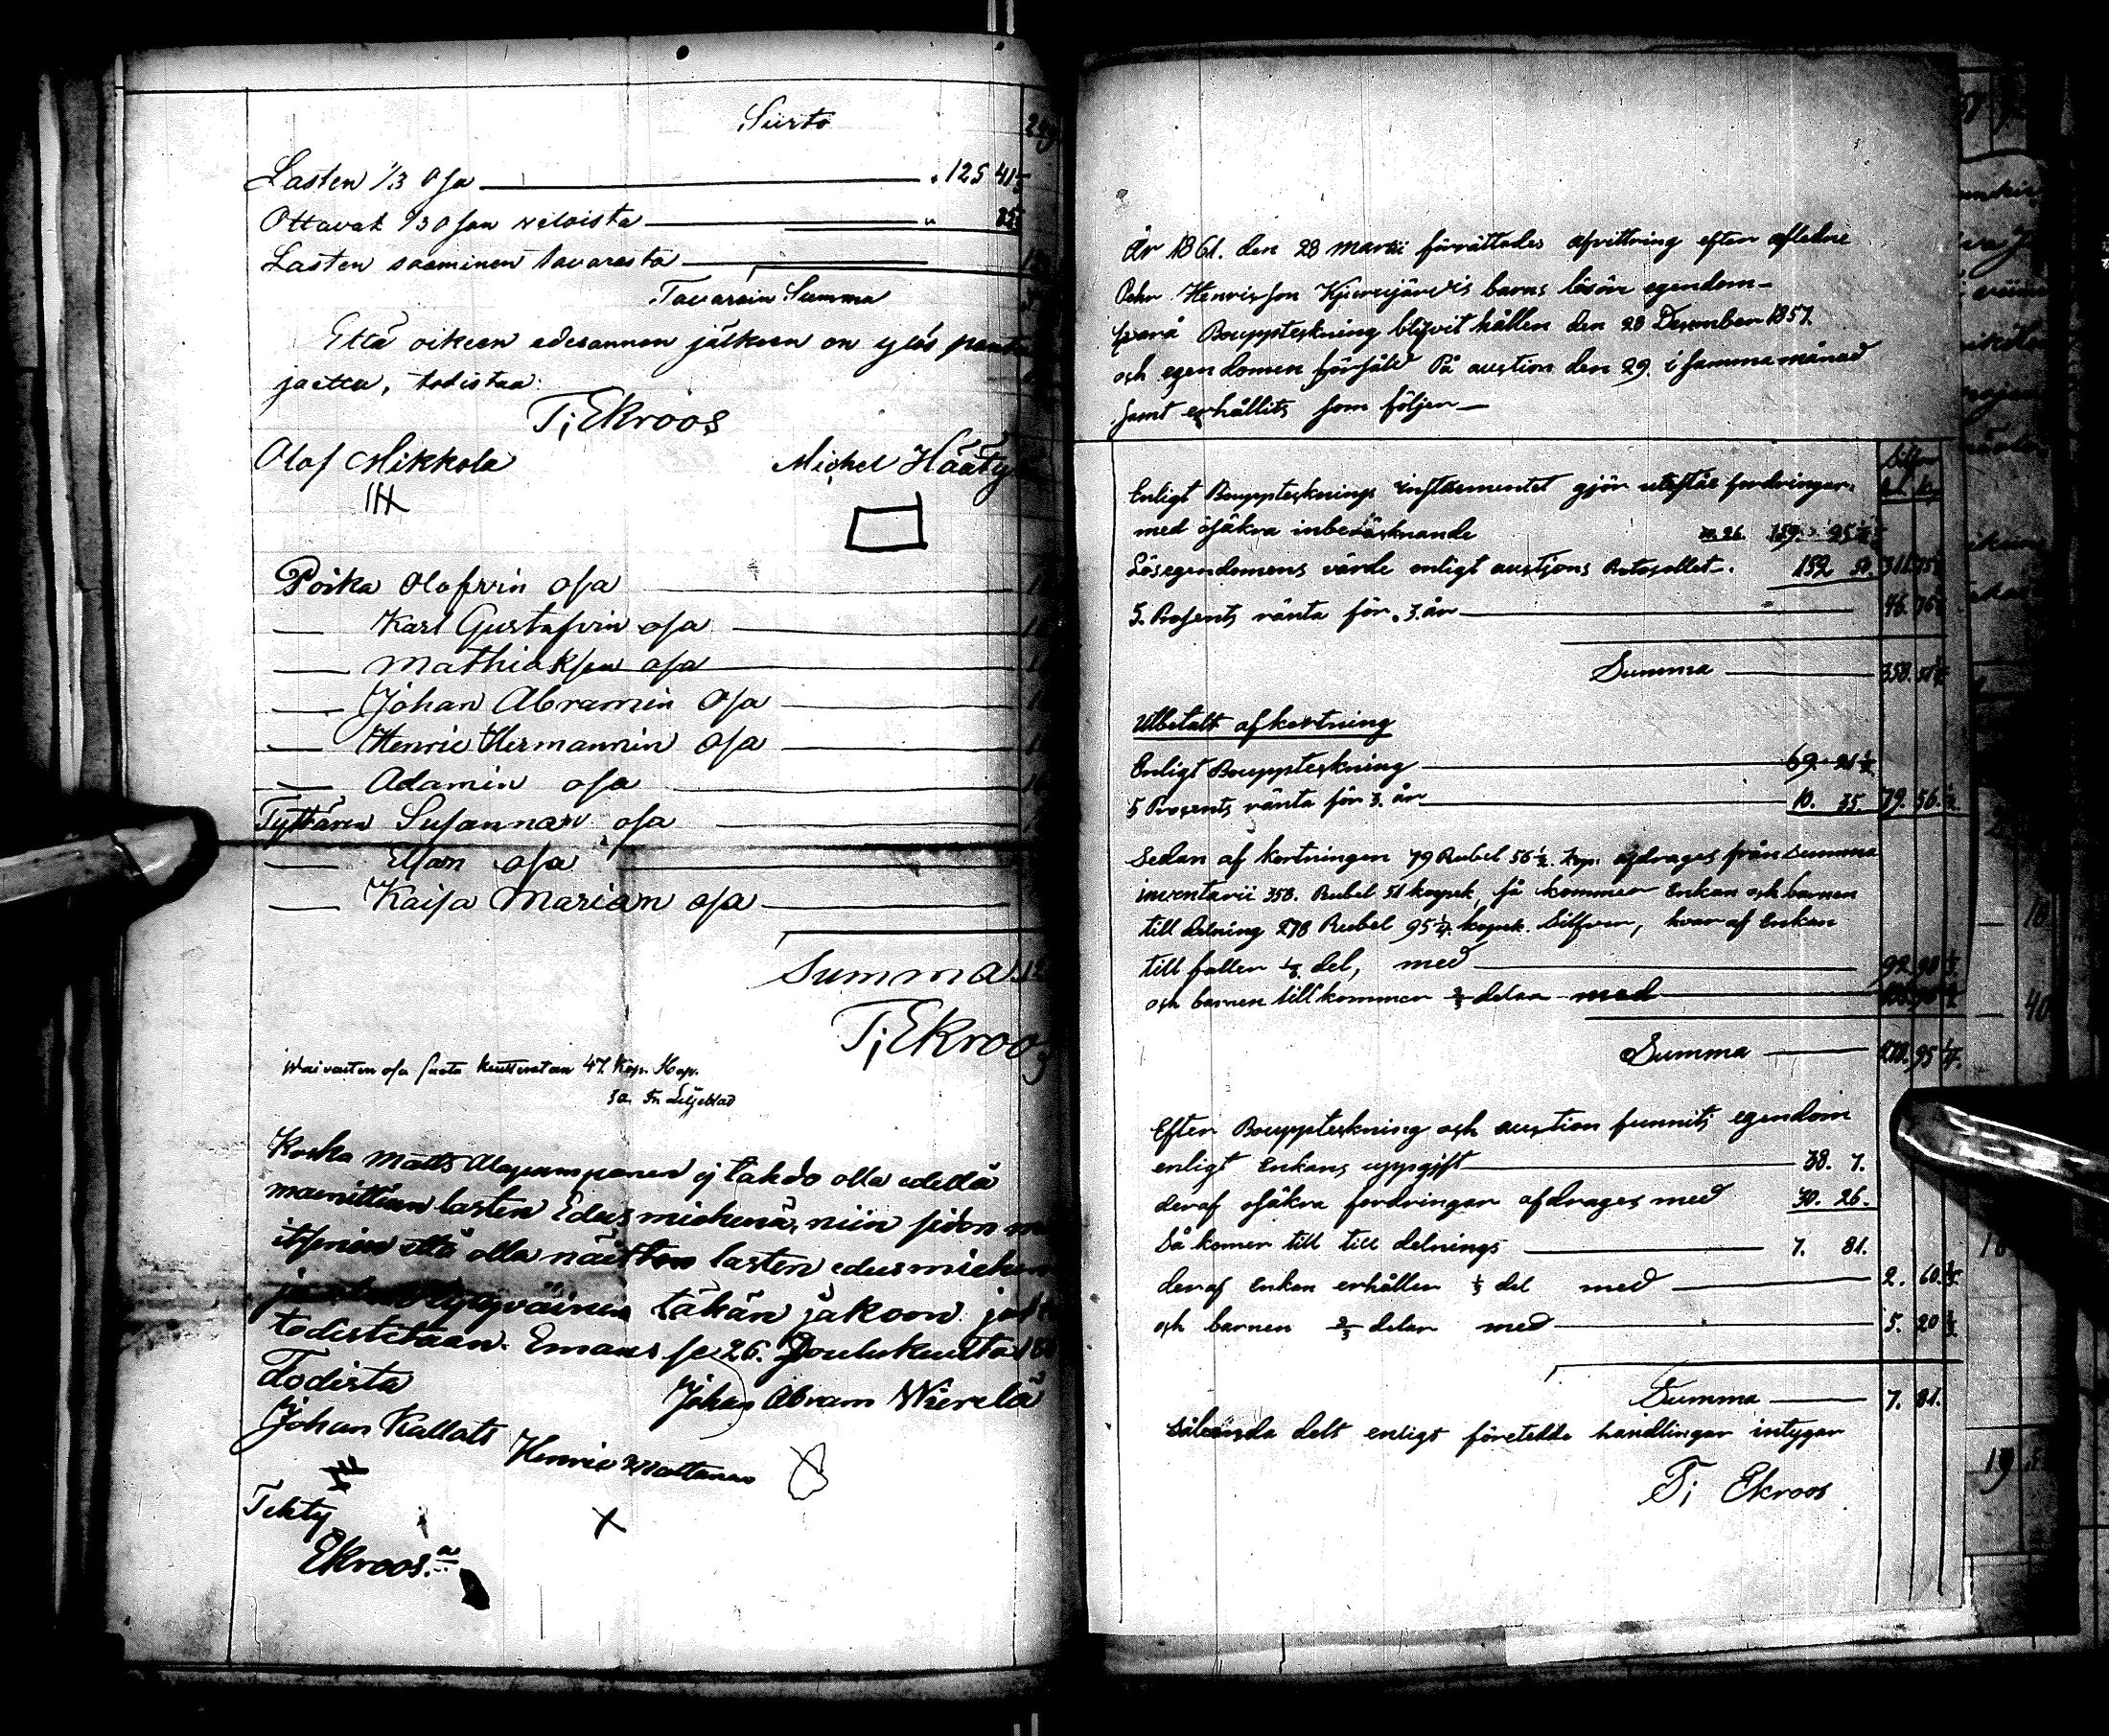 Siirto
Lasten 1/3 Osa " 125 41
Ottavat 1/3 Osan veloista "
Lasten saaminen tavarasta
Tavarain Summa
Että oikeen edesannon jälkeen on ylös pantu
jaettu, todistaa
T; Ekroos
Olof Mikkola Michel Hääty
Poika Olofvin osa
— Karl Gustafvin osa
— Mathiaksen osa
— Johan Abramin Osa
— Henric Hermannin Osa
— Adamin osa
Tyttären Susannan osa
— Elsan osa
— Kaisa Marian osa
Summa
T; Ekroos
Waivasten osa saatu kuitteratan 47 Kop. Hop.
Koska Matts Alapumpanen ej tahdo olla edellä
mainittuin lasten Edusmiehenä, niin sidon
itseni että olla näitten lasten edusmiehen
tyytyväinen tähän jakoon
todistetaan. Emaus se 26. Joulukuuta
Todista Johan Abram Wierelä
Johan Kallatt Henric Mattanen
Tehty
Ekroos.
År 1861. den 28 martii förrättades afvittring efter afledne
Pehr Henrisson Kjerrejärvis barns lösöre egendom
hvarå Bouppteckning blifvit hållen den 28 December 1857.
och egendomen försåld På auction den 29. i samma månad
samt erhållits som följer
Silfver
Enligt Bouppteckning instrumentet gjör utestå fordringar
med osäkra inberäknande 159. 25
Lösegendomens värde enligt auctions Protocollet. 152 50. 311 75
5. Procents ränta för. 3. år 46. 76
Summa 358. 51
Utbetalt afkortning
Enligt Bouppteckning 69. 21 1/2
5 Procents ränta för 3. år 10. 35. 79. 56. 1/2
Sedan afkortningen 79 Rubel 56 1/2 kop. afdrages från summa
inventarii 358. Rubel 51 kopek, så kommer Enkan och barnen
till delning 278 Rubel 95 1/4. kopek. Silfver, hvaraf Enkan
tillfaller 1/3. del, med 92. 98
och barnen tillkommer 2/3 delar med
Summa 278. 95 1/4.
Efter Bouppteckning och auction funnits egendom
enligt Enkans uppgift 38. 7.
deraf osäkra fordringar afdrages med 30. 26.
Så komer till till delnings 7. 81.
deraf Enkan erhåller 1/3 del med 2. 60. 1/3
och barnen 2/3 delar med 5. 20
Summa 7. 81.
Sålunda delt enligt företedde handlingar intygar
T; Ekroos